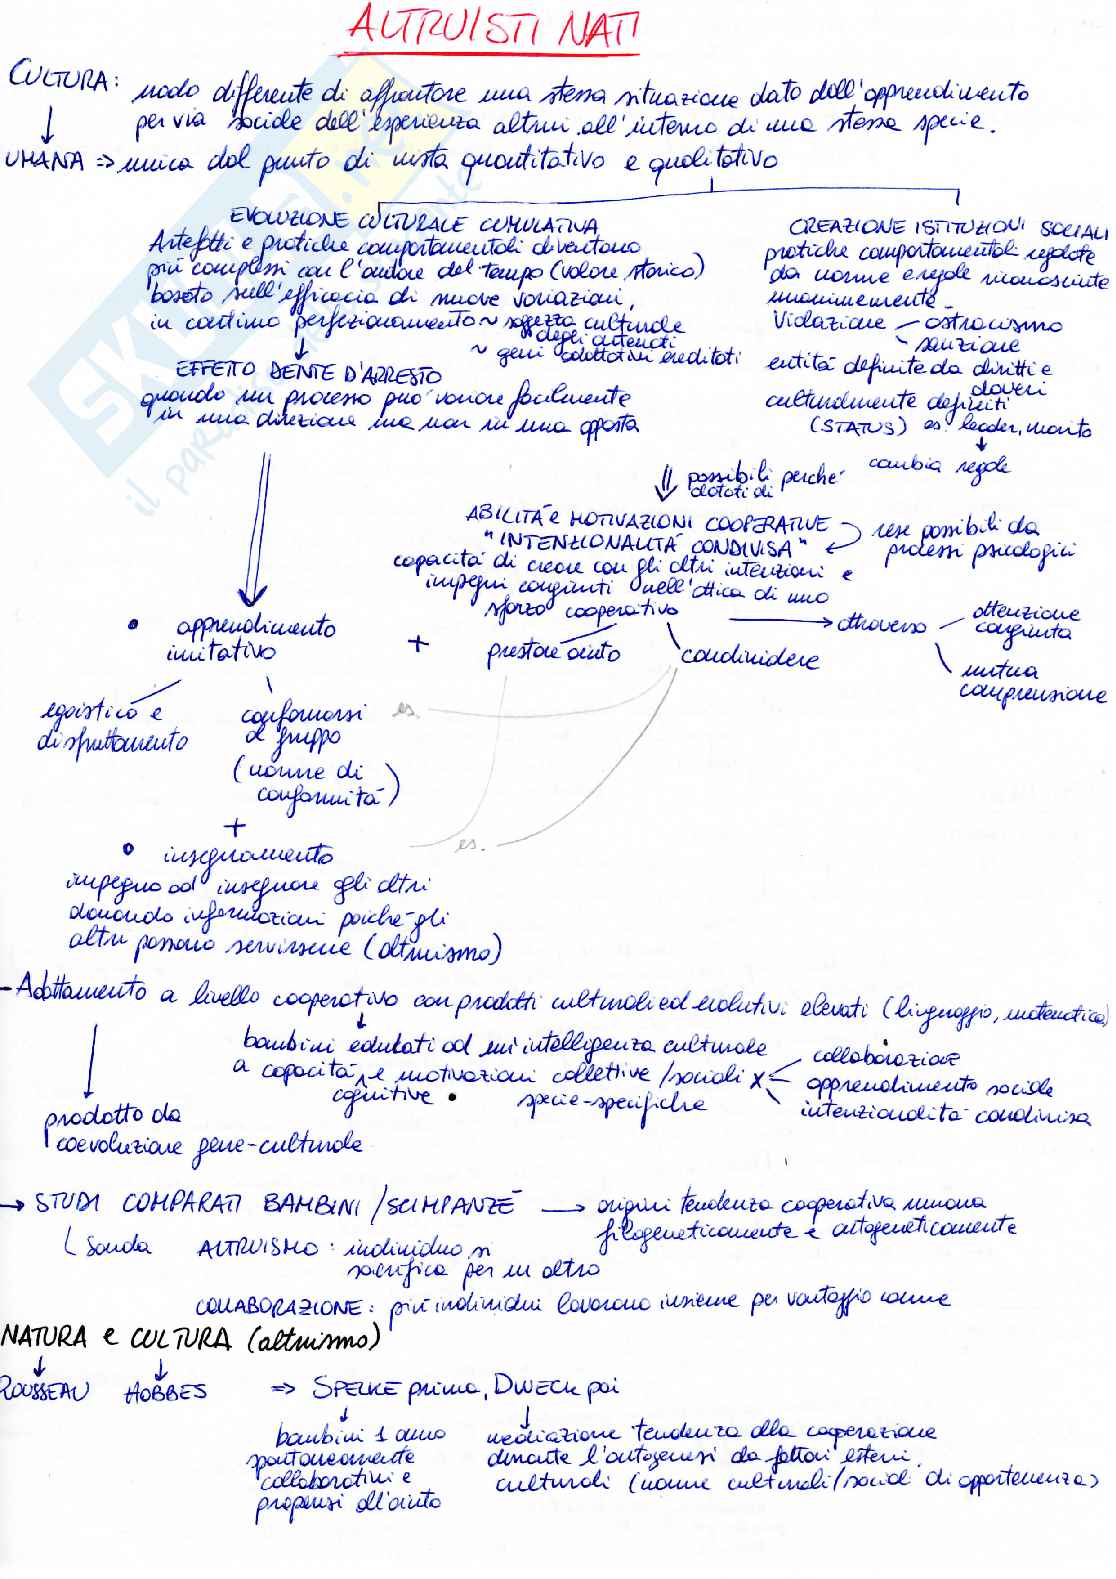 ALTRUISTI NATI
CULTURA: modo differente di affrontare una stessa situazione dato dall'apprendimento
per via sociale dell'esperienza altrui all'interno di una stessa specie.
UMANA => unica dal punto di vista quantitativo e qualitativo
EVOLUZIONE CULTURALE CUMULATIVA
Artefatti e pratiche comportamentali diventano
più complessi con l'andare del tempo (valore storico)
basato sull'efficacia di nuove variazioni,
in continuo perfezionamento ~ saggezza culturale
degli antenati
~ geni adattativi ereditati
EFFETTO DENTE D'ARRESTO
quando un processo può variare facilmente
in una direzione ma non in una opposta
CREAZIONE ISTITUZIONI SOCIALI
pratiche comportamentali regolate
da norme e regole riconosciute
unanimemente
Violazione - ostracismo
- sanzione
entità definite da diritti e
doveri
culturalmente definiti
(STATUS) es. leader, marito
cambia regole
possibili perché
dotati di
ABILITÀ e MOTIVAZIONI COOPERATIVE
"INTENZIONALITÀ CONDIVISA"
rese possibili da
processi psicologici
capacità di creare con gli altri intenzioni e
impegni congiunti nell'ottica di uno
sforzo cooperativo
attraverso
attenzione
congiunta
mutua
comprensione
prestare aiuto
condividere
+
• apprendimento
imitativo
egoistico e
di sfruttamento
conformarsi
al gruppo
(norme di
conformità)
es.
+
• insegnamento
es.
impegno ad insegnare gli altri
donando informazioni poiché gli
altri possano servirsene (altruismo)
- Adattamento a livello cooperativo con prodotti culturali ed evolutivi elevati (linguaggio, matematica)
bambini educati ad un'intelligenza culturale
a capacità e motivazioni collettive/sociali x
cognitive •
specie-specifiche
collaborazione
apprendimento sociale
intenzionalità condivisa
prodotto da
coevoluzione gene-culturale
→ STUDI COMPARATI BAMBINI/SCIMPANZÉ → origini tendenza cooperativa umana
filogeneticamente e ontogeneticamente
Sonda ALTRUISMO: individuo si
sacrifica per un altro
COLLABORAZIONE: più individui lavorano insieme per vantaggio comune
NATURA e CULTURA (altruismo)
ROUSSEAU HOBBES => SPELKE prima, DWECK poi
bambini 1 anno
spontaneamente
collaborativi e
propensi all'aiuto
mediazione tendenza alla cooperazione
durante l'ontogenesi da fattori esterni
culturali (norme culturali/sociali di appartenenza)